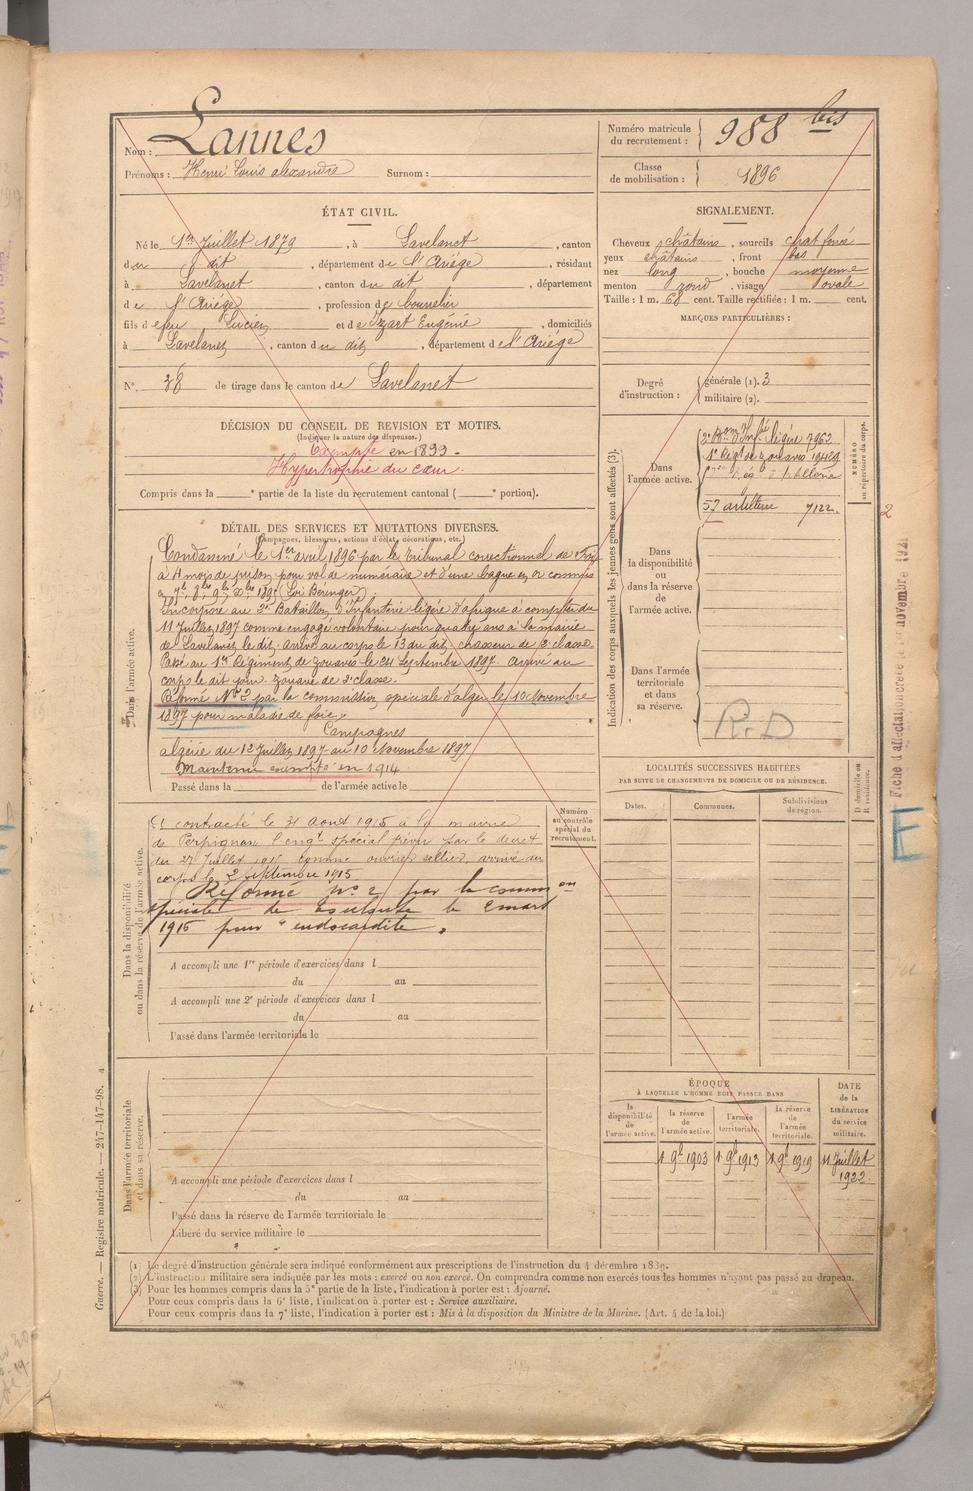 Lannes
Nom :
Prénoms : Henri Louis alexandre Surnom :
Numéro matricule du recrutement : 988 bis
Classe de mobilisation : 1896
ÉTAT CIVIL.
Né le 1er Juillet 1879, à Lavelanet, canton
du dit, département de l'Ariège, résidant
à Lavelanet, canton du dit, département
de l'Ariège, profession de bourrelier
fils de feu Lucien et de Izart Eugénie, domiciliés
à Lavelanet, canton du dit, département de l'Ariège
N° 38 de tirage dans le canton de Lavelanet
SIGNALEMENT.
Cheveux châtains, sourcils chat foncé
yeux châtains, front bas
nez long, bouche moyenne
menton rond, visage ovale
Taille : 1 m. 68 cent. Taille rectifiée : 1 m. cent.
MARQUES PARTICULIÈRES :
Degré d'instruction : générale (1). 3
militaire (2).
DÉCISION DU CONSEIL DE REVISION ET MOTIFS.
(Indiquer la nature des dispenses.)
Exempté en 1899.
Hypertrophie du cœur.
Compris dans la e partie de la liste du recrutement cantonal ( e portion).
DÉTAIL DES SERVICES ET MUTATIONS DIVERSES.
(Campagnes, blessures, actions d'éclat, décorations, etc.)
Dans l'armée active.
Condamné le 1er avril 1896 par le Tribunal correctionnel de
à 4 mois de prison pour vol de numéraire et d'une bague en or commis
(Loi Bérenger)
Incorporé au 2e Bataillon d'Infanterie légère d'afrique à compter du
11 Juillet 1897 comme engagé volontaire pour quatre ans à la mairie
de Lavelanet le dit. Arrivé au corps le 13 du dit, chasseur de 2e classe.
Passé au 1er Régiment de zouaves le 21 septembre 1897. Arrivé au
corps le dit jour. zouave de 2e classe.
Réformé No 2 par la commission spéciale d'alger le 10 Novembre
1897 pour maladie de foie.
Campagnes
algérie du 12 Juillet 1897 au 10 Novembre 1897
Maintenu exempté en 1914
Passé dans la de l'armée active le
Indication des corps auxquels les jeunes gens sont affectés (3).
Dans l'armée active.
2e Baton d'Infrie légère 7962
1er Régt de zouaves
57 artillerie 7122.
NUMÉRO au répertoire du corps.
2
Dans la disponibilité ou dans la réserve de l'armée active.
Dans l'armée territoriale et dans sa réserve.
R.D
Dans la disponibilité ou dans la réserve de l'armée active.
A contracté le 31 Aout 1915 à la mairie
de Perpignan l'engt spécial prévu par le decret
du 27 Juillet 1915 comme ouvrier sellier, arrivé au
corps le 2 septembre 1915
Réformé no 2 par la common
spéciale de Toulouse le 2 mars
1916 pour "endocardite".
Numéro au contrôle spécial du recrutement.
A accompli une 1re période d'exercices dans l
du au
A accompli une 2e période d'exercices dans l
du au
Passé dans l'armée territoriale le
Dans l'armée territoriale et dans sa réserve.
A accompli une période d'exercices dans l
du au
Passé dans la réserve de l'armée territoriale le
Libéré du service militaire le
LOCALITÉS SUCCESSIVES HABITÉES
PAR SUITE DE CHANGEMENTS DE DOMICILE OU DE RÉSIDENCE.
Dates. Communes. Subdivisions de région. D domicile ou R résidence.
Fiche d'affectation créée le 1er novembre 1921
E
ÉPOQUE
À LAQUELLE L'HOMME DOIT PASSER DANS
la disponibilité de l'armée active.
la réserve de l'armée active.
l'armée territoriale.
la réserve de l'armée territoriale.
DATE de la LIBÉRATION du service militaire.
1 9bre 1903 1 9bre 1913 1 9bre 1919 11 Juillet 1922
(1) Le degré d'instruction générale sera indiqué conformément aux prescriptions de l'instruction du 4 décembre 1889.
(2) L'instruction militaire sera indiquée par les mots : exercé ou non exercé. On comprendra comme non exercés tous les hommes n'ayant pas passé au drapeau.
(3) Pour les hommes compris dans la 5e partie de la liste, l'indication à porter est : Ajourné.
Pour ceux compris dans la 6e liste, l'indication à porter est : Service auxiliaire.
Pour ceux compris dans la 7e liste, l'indication à porter est : Mis à la disposition du Ministre de la Marine. (Art. 4 de la loi.)
Guerre. — Registre matricule. — 247-147-98. 4